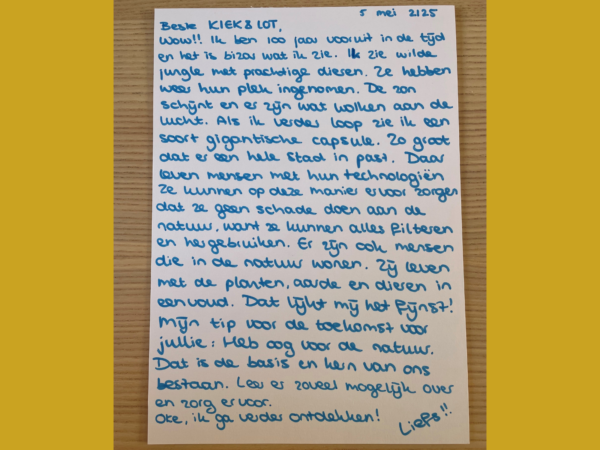 5 mei 2125
Beste KIEK & LOT,
Wow!! Ik ben 100 jaar vooruit in de tijd
en het is bizar wat ik zie. Ik zie wilde
jungle met prachtige dieren. Ze hebben
weer hun plek ingenomen. De zon
schijnt en er zijn wat wolken aan de
lucht. Als ik verder loop zie ik een
soort gigantische capsule. Zo groot
dat er een hele stad in past. Daar
leven mensen met hun technologiën
Ze kunnen op deze manier ervoor zorgen
dat ze geen schade doen aan de
natuur, want ze kunnen alles filteren
en hergebruiken. Er zijn ook mensen
die in de natuur wonen. Zij leven
met de planten, aarde en dieren in
eenvoud. Dat lijkt mij het fijnst!
Mijn tip voor de toekomst voor
jullie: Heb oog voor de natuur.
Dat is de basis en kern van ons
bestaan. Leer er zoveel mogelijk over
en zorg ervoor.
Oke, ik ga verder ontdekken!
Liefs!!